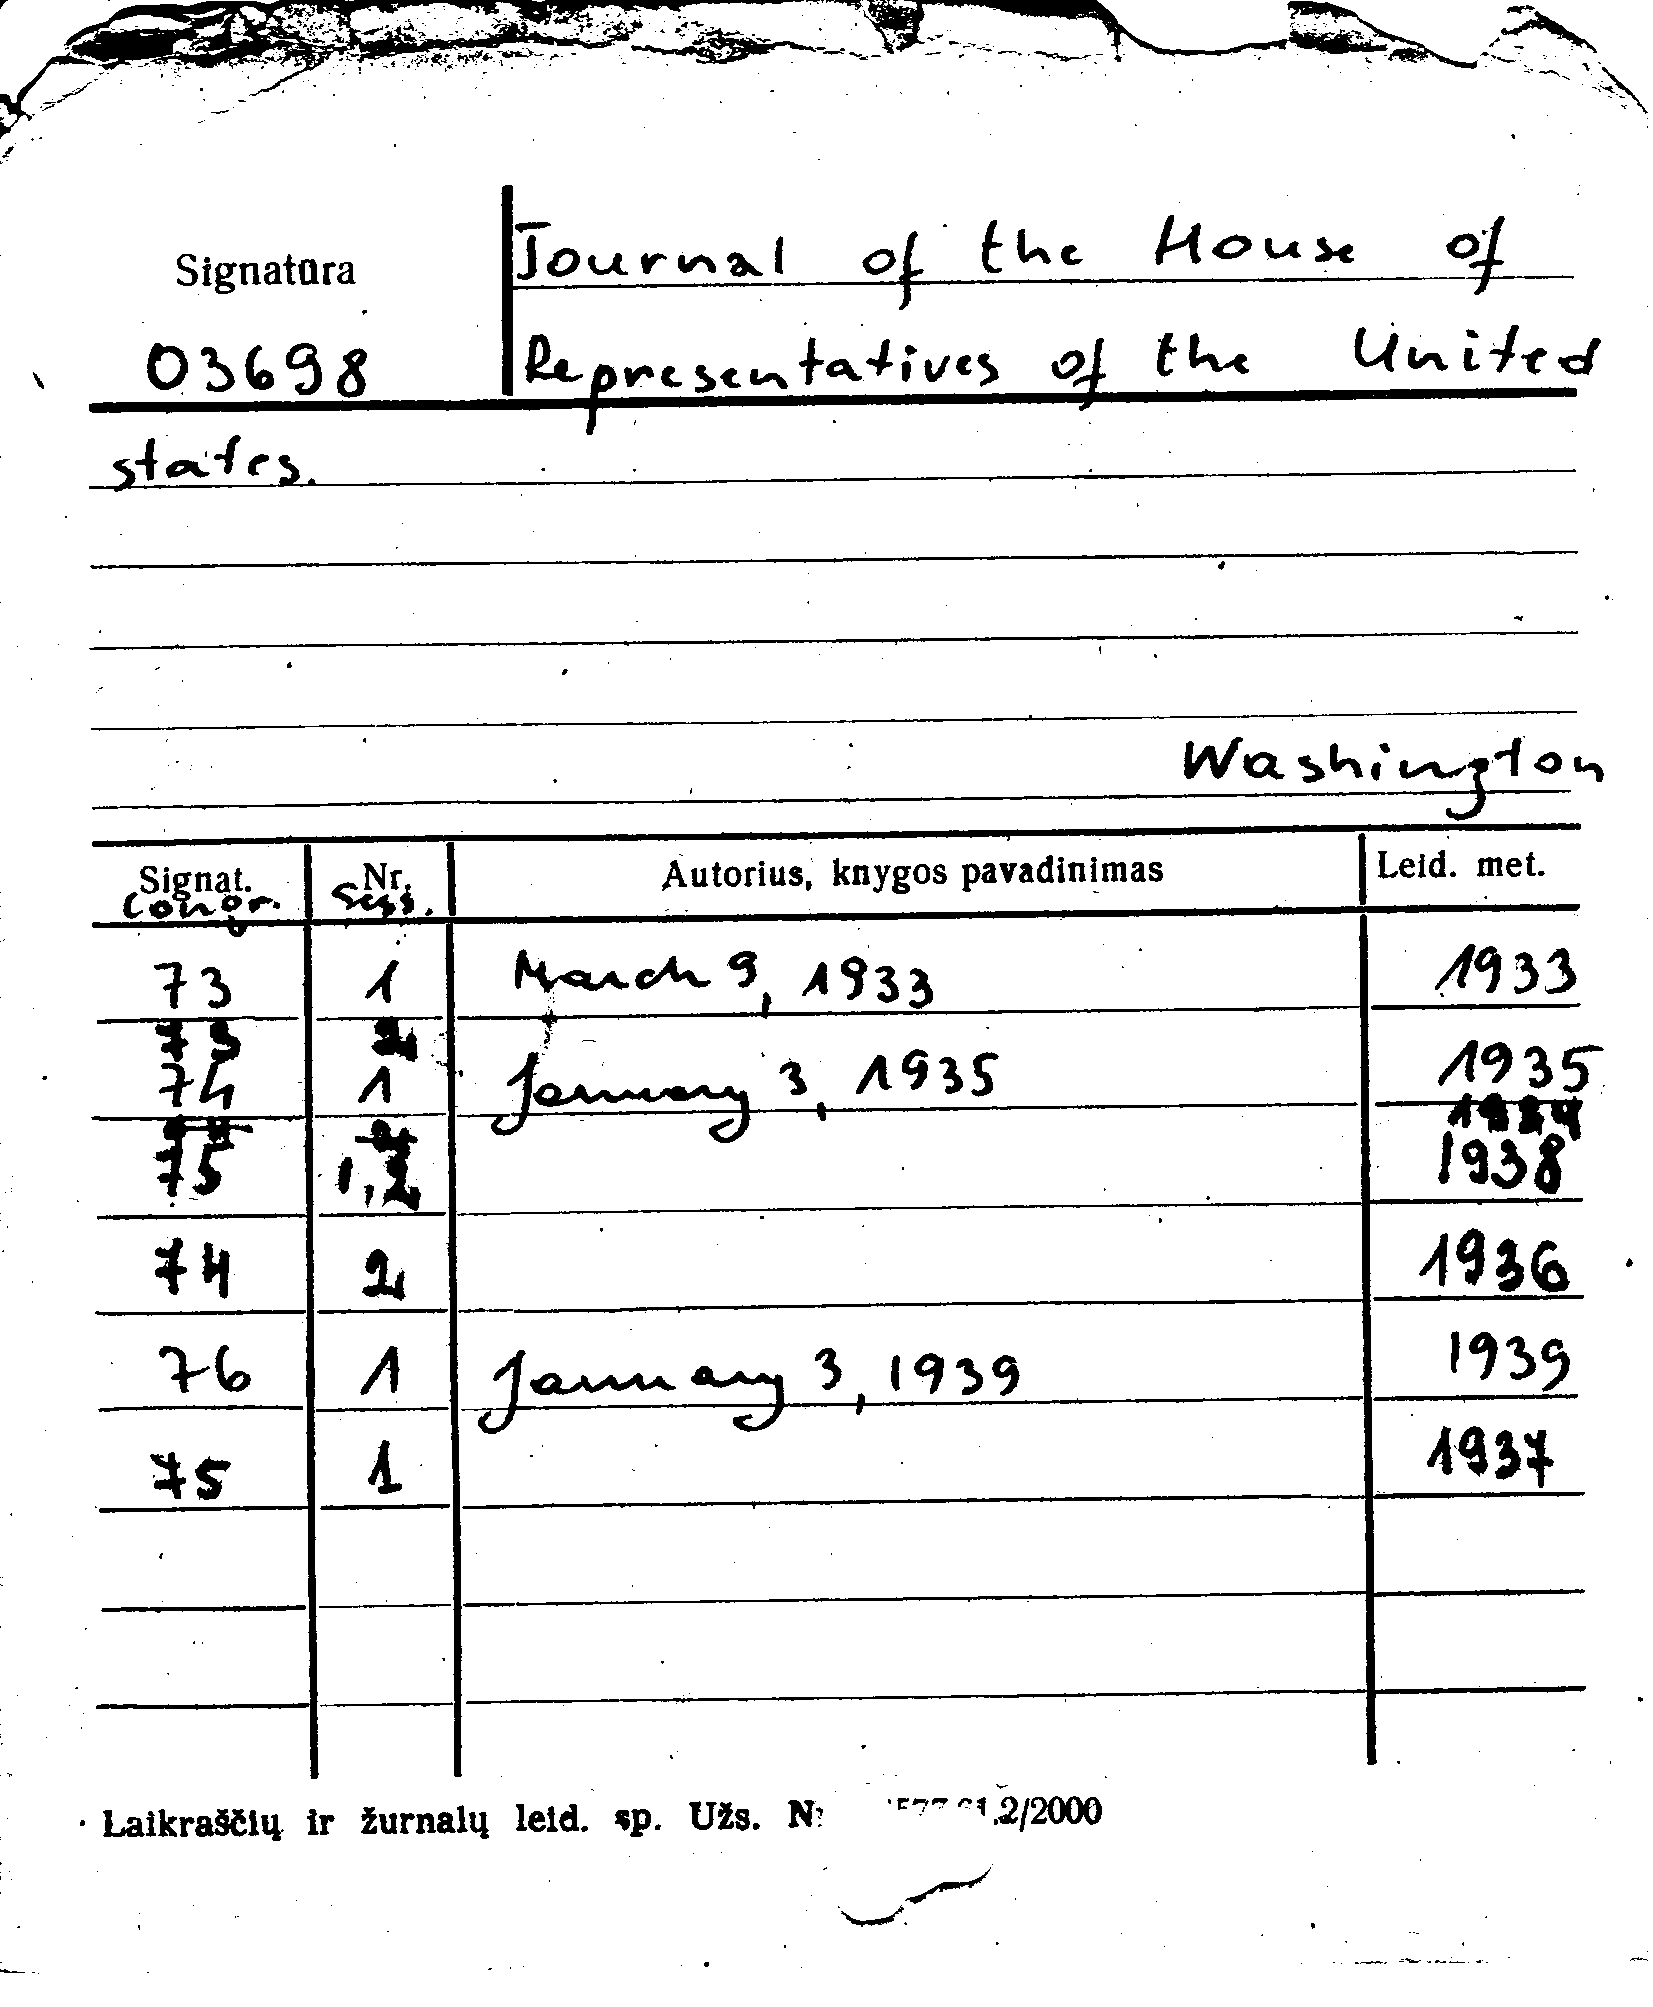 Signatūra
Journal of the House of
03698
Representatives of the United
states.
Washington
Signat. Nr. Autorius, knygos pavadinimas Leid. met.
Congr. Sess.
73 1 March 9, 1933 1933
73 2
74 1 January 3, 1935 1935
74 2 1934
75 1,2 1938
74 2 1936
76 1 January 3, 1939 1939
75 1 1937
Laikraščių ir žurnalų leid. sp. Užs. 2/2000